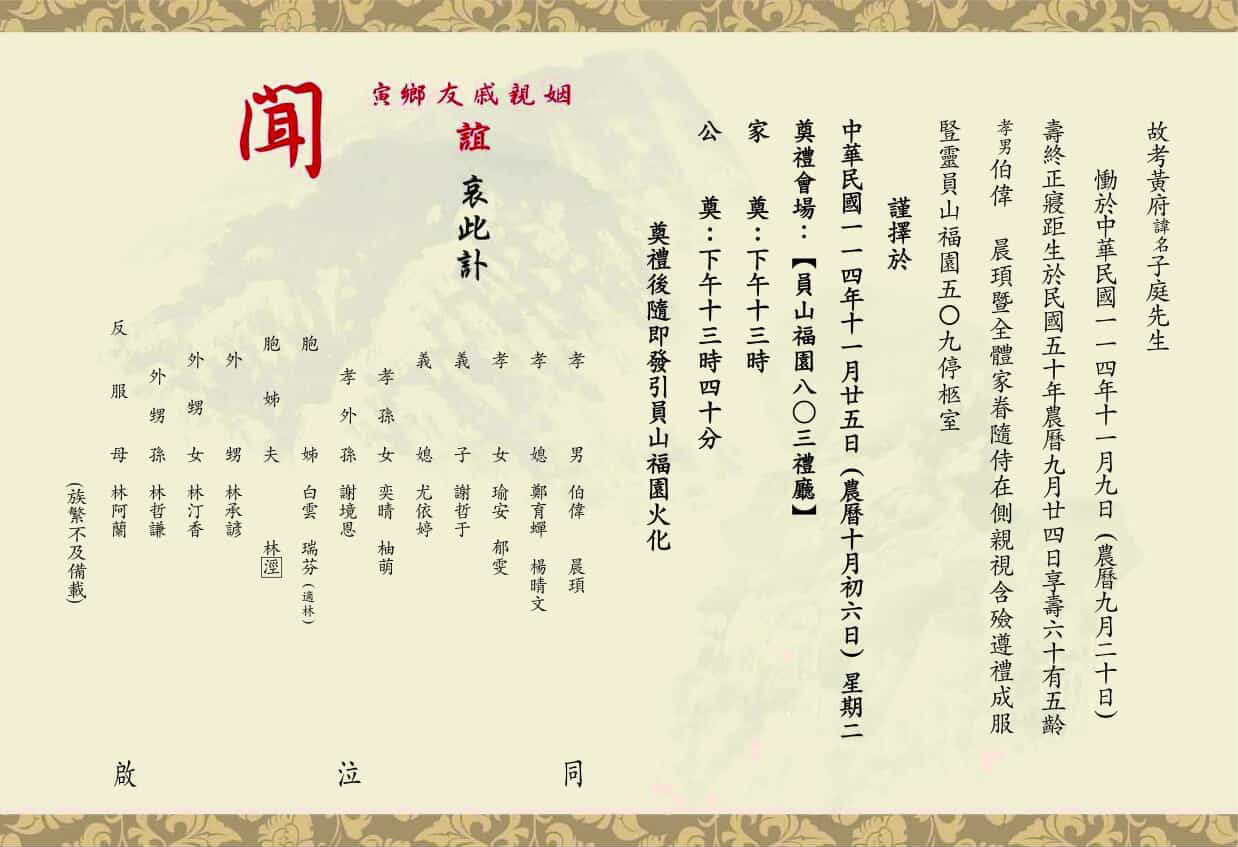 故考黃府諱名子庭先生
慟於中華民國一一四年十一月九日(農曆九月二十日)
壽終正寢距生於民國五十年農曆九月廿四日享壽六十有五齡
孝男伯偉 晨頊暨全體家眷隨侍在側親視含殮遵禮成服
豎靈員山福園五〇九停柩室
謹擇於
中華民國一一四年十一月廿五日(農曆十月初六日)星期二
奠禮會場:【員山福園八〇三禮廳】
家 奠:下午十三時
公 奠:下午十三時四十分
奠禮後隨即發引員山福園火化
寅鄉友戚親姻
誼
哀此訃
聞
孝男 伯偉 晨頊
孝媳 鄭育蟬 楊晴文
孝女 瑜安 郁雯
義子 謝哲于
義媳 尤依婷
孝孫女 奕晴 柚萌
孝外孫 謝境恩
胞姊 白雲 瑞芬(適林)
胞姊夫 林溼
外甥 林承諺
外甥女 林汀香
外甥孫 林哲謙
反服母 林阿蘭
(族繁不及備載)
同 泣 啟